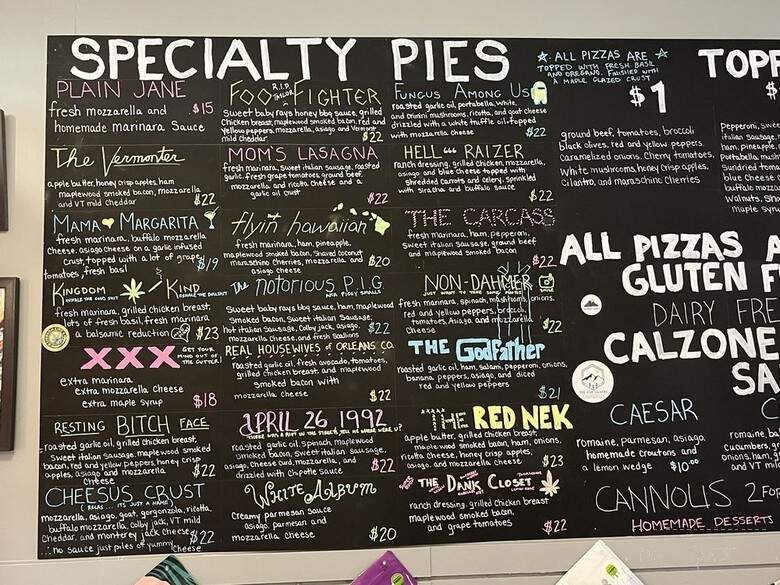 SPECIALTY PIES
PLAIN JANE
fresh mozzarella and
homemade marinara Sauce
$15
The Vermonter
apple butter, honey crisp apples, ham
maplewood smoked bacon, mozzarella
and VT mild cheddar
$22
MAMA MARGARITA
fresh marinara, buffalo mozzarella
cheese asiago cheese on a garlic infused
crust, topped with a lot of grape
tomatoes, fresh basil
$19
KINGDOM KIND
fresh marinara, grilled chicken breast,
lots of fresh basil, fresh marinara
a balsamic reduction
$23
XXX
GET YOUR
MIND OUT OF
THE GUTTER!
extra marinara
extra mozzarella cheese
extra maple syrup
$18
RESTING BITCH FACE
roasted garlic oil, grilled chicken breast,
sweet italian sausage, maplewood smoked
bacon, red and yellow peppers, honey crisp
apples, asiago and mozzarella
cheese
$22
CHEESUS CRUST
( RELAX ... IT'S JUST A NAME )
mozzarella, asiago, goat, gorgonzola, ricotta,
buffalo mozzarella, colby jack, VT mild
cheddar, and monterey jack cheese
...no sauce just piles of yummy cheese
$22
FOO FIGHTER
R.I.P.
TAYLOR
Sweet baby rays honey bbq sauce, grilled
Chicken breast, maplewood smoked bacon, red and
yellow peppers, mozzarella, asiago and Vermont
mild Cheddar
$22
MOM'S LASAGNA
fresh marinara, Sweet italian sausage, roasted
garlic, fresh grape tomatoes ground beef,
mozzarella, and ricotta Cheese and a
garlic oil crust
$22
flyin hawaiian
fresh marinara, ham, pineapple,
maplewood smoked bacon, shaved coconut
maraschino Cherries, mozzarella and
asiago cheese
$20
THE NOTORIOUS P.I.G.
Sweet baby rays bbq sauce, ham, maplewood
smoked bacon, Sweet Italian Sausage,
hot italian Sausage, Colby jack, asiago,
mozzarella Cheese, and fresh Scallions
$22
REAL HOUSEWIVES of ORLEANS CO.
roasted garlic oil, fresh avocado, tomatoes,
grilled chicken breast, and maplewood
smoked bacon with
mozzarella cheese
$22
APRIL 26, 1992
roasted garlic oil, spinach, maplewood
smoked bacon, sweet italian sausage,
asiago, Cheese curd, mozzarella, and
drizzled with Chipotle Sauce
$22
WHITE ALBUM
Creamy parmesan Sauce
asiago, parmesan and
mozzarella cheese
$20
FUNGUS AMONG US
roasted garlic oil, portabella, white,
and crimini mushrooms, ricotta, and goat cheese
drizzled with a white truffle oil-topped
with mozzarella cheese
$22
HELL RAIZER
ranch dressing, grilled chicken, mozzarella,
asiago and blue cheese topped with
shredded carrots and celery, Sprinkled
with siracha and buffalo sauce
$22
THE CARCASS
fresh marinara, ham, pepperoni,
Sweet italian Sausage, ground beef
and maplewood smoked bacon
$22
NON-DAHMER
fresh marinara, spinach, mushroom, onions,
red and yellow peppers, broccoli,
tomatoes, Asiago, and mozzarella
$22
THE Godfather
roasted garlic oil, ham, salami, pepperoni, onions,
banana peppers, asiago, and diced
red and yellow peppers
$21
THE RED NEK
apple butter, grilled chicken breast,
maplewood smoked bacon, ham, onions,
ricotta cheese, honey crisp apples,
asiago, and mozzarella cheese.
$23
THE DANK CLOSET
ranch dressing, grilled chicken breast
maplewood smoked bacon,
and grape tomatoes
$22
ALL PIZZAS ARE
TOPPED WITH FRESH BASIL
AND OREGANO, FINISHED WITH
A MAPLE GLAZED CRUST
TOPP
$1
ground beef, tomatoes, broccoli
black olives, red and yellow peppers,
caramelized onions, Cherry tomatoes,
white mushrooms, honey crisp apples,
Cilantro, and maraschino Cherries
Pepperoni, swee
italian Sausage,
ham, pineapple,
Portabella, mush
Sundried toma
blue Cheese C
buffalo mozz
Walnuts, Sha
maple syru
ALL PIZZAS A
GLUTEN F
DAIRY FRE
CALZONE
SA
CAESAR
romaine, parmesan, asiago,
homemade croutons and
a lemon wedge
$10.00
romaine, ba
cucumbers, gr
onions, ham, g
and VT mil
CANNOLIS 2 FO
HOMEMADE DESSERTS